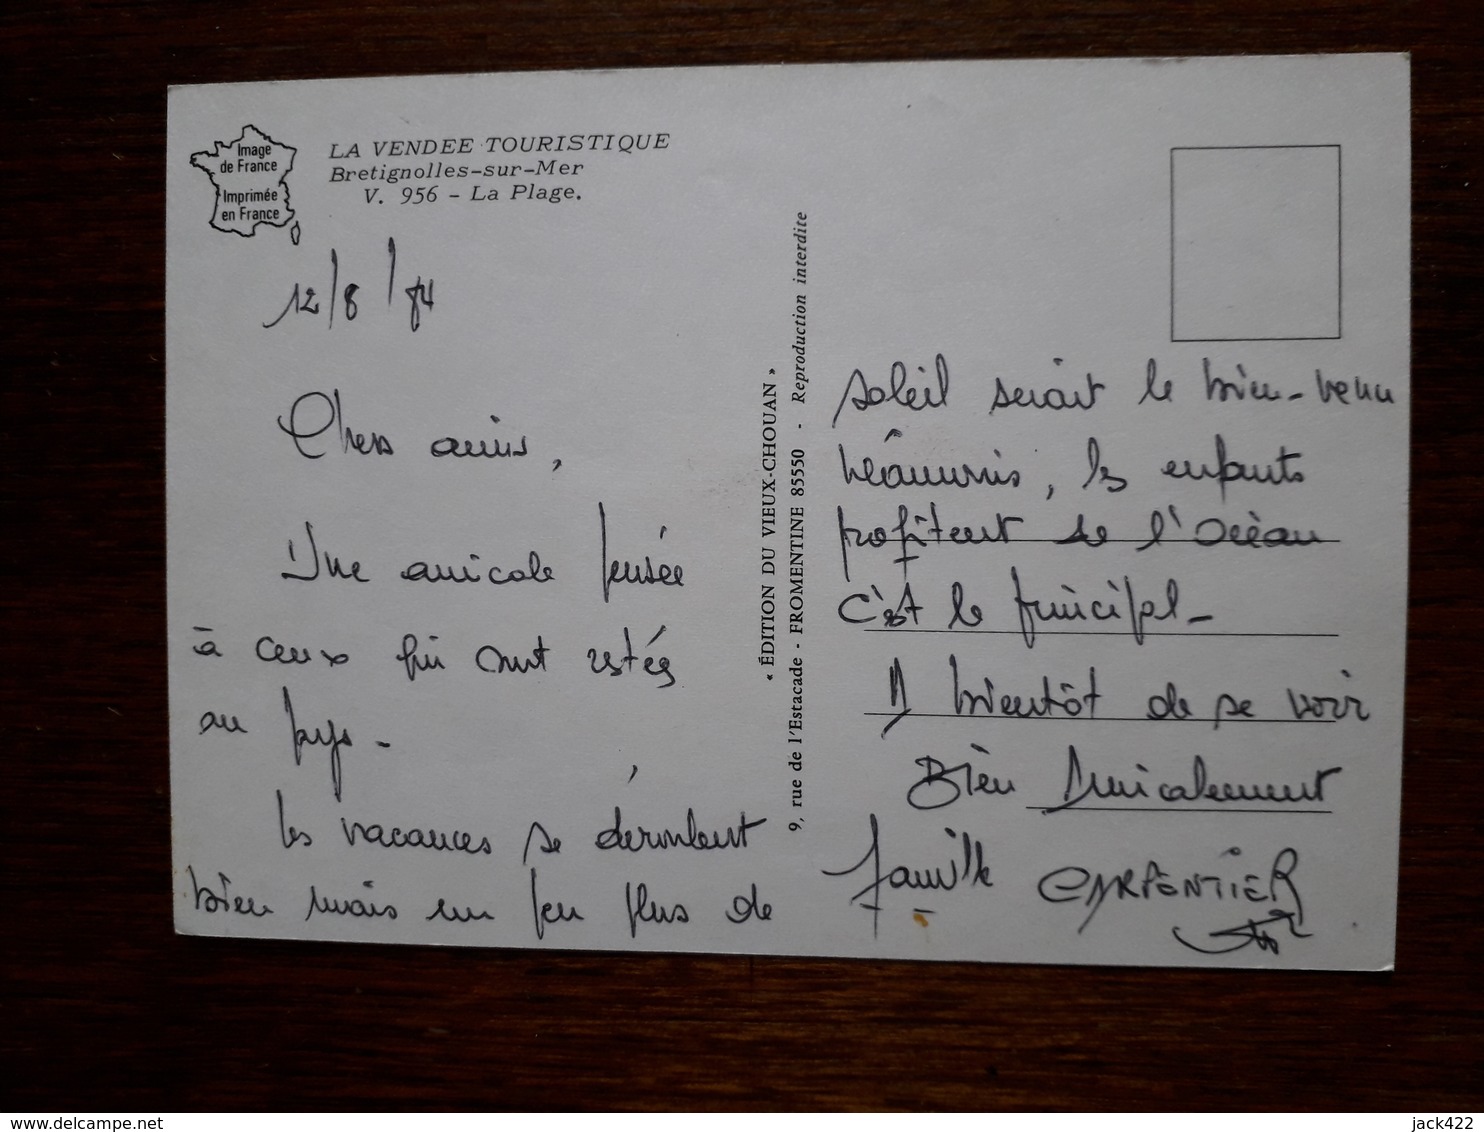 Image
de France
Imprimée
en France
LA VENDEE TOURISTIQUE
Bretignolles-sur-Mer
V. 956 - La Plage.
12/8/84
Chers amis,
Une amicale pensée
à ceux qui ont restés
au pays -
Les vacances se déroulent
bien mais un peu plus de
« ÉDITION DU VIEUX-CHOUAN »
9, rue de l'Estacade - FROMENTINE 85550 - Reproduction interdite
soleil serait le bien-venu
néâumnis, les enfants
profitent de l'Océan
C'est le principal -
A bientôt de se voir
Bien Amicalement
famille CARPENTIER
delcampe.net
jack422